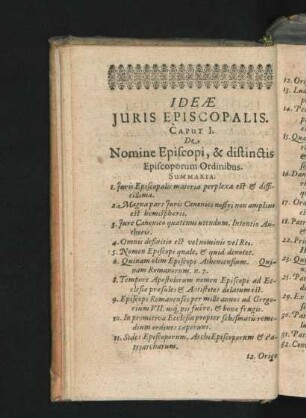 IDEÆ
JURIS EPISCOPALIS.
CAPUT I.
De
Nomine Episcopi, & distinctis
Episcoporum Ordinibus.
SUMMARIA.
1. Juris Episcopalis materia perplexa est & diffi-
cillima.
2. Magna pars Juris Canonici nostri non amplius
est hemisphærii.
3. Jure Canonico quatenus utendum. Intentio Au-
thoris.
4. Omnis definitio est vel nominis vel Rei.
5. Nomen Episcopi quale, & quid denotet.
6. Quinam olim Episcopi Atheniensium. Qui-
nam Romanorum. n. 7.
8. Tempore Apostolorum nomen Episcopi ad Ec-
clesiæ præsules & Antistites delatum est.
9. Episcopi Romanenses per mille annos ad Grego-
rium VII. usq; pii fuere, & bonæ frugis.
10. In primitiva Ecclesia propter schismatis reme-
dium ordines cæperunt.
11. Sedes Episcoporum, ArchiEpiscoporum & Pa-
triarcharum.
12. Orig